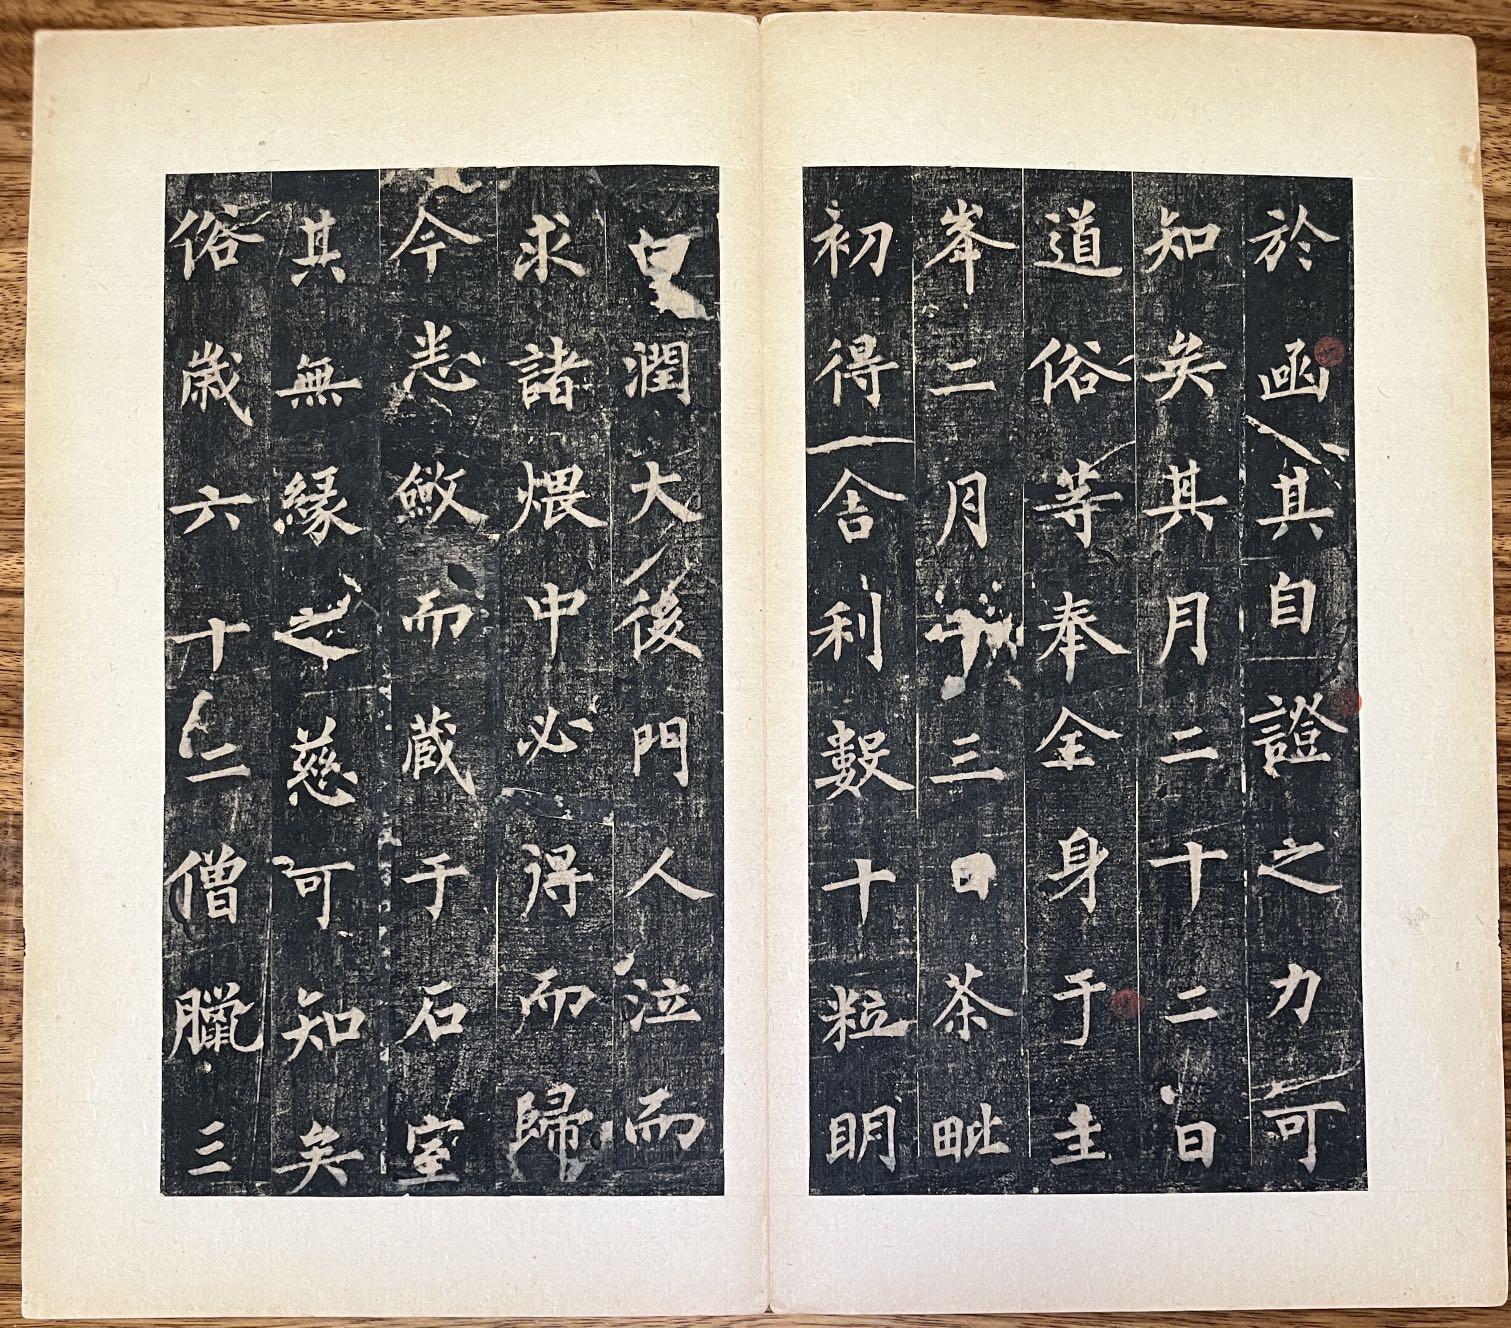 於函其自證之力可
知矣其月二十二日
道俗等奉全身于圭
峯二月十三日荼毗
初得舍利數十粒明
白潤大後門人泣而
求諸煨中必得而歸
今悉斂而藏于石室
其無緣之慈可知矣
俗歲六十二僧臘三